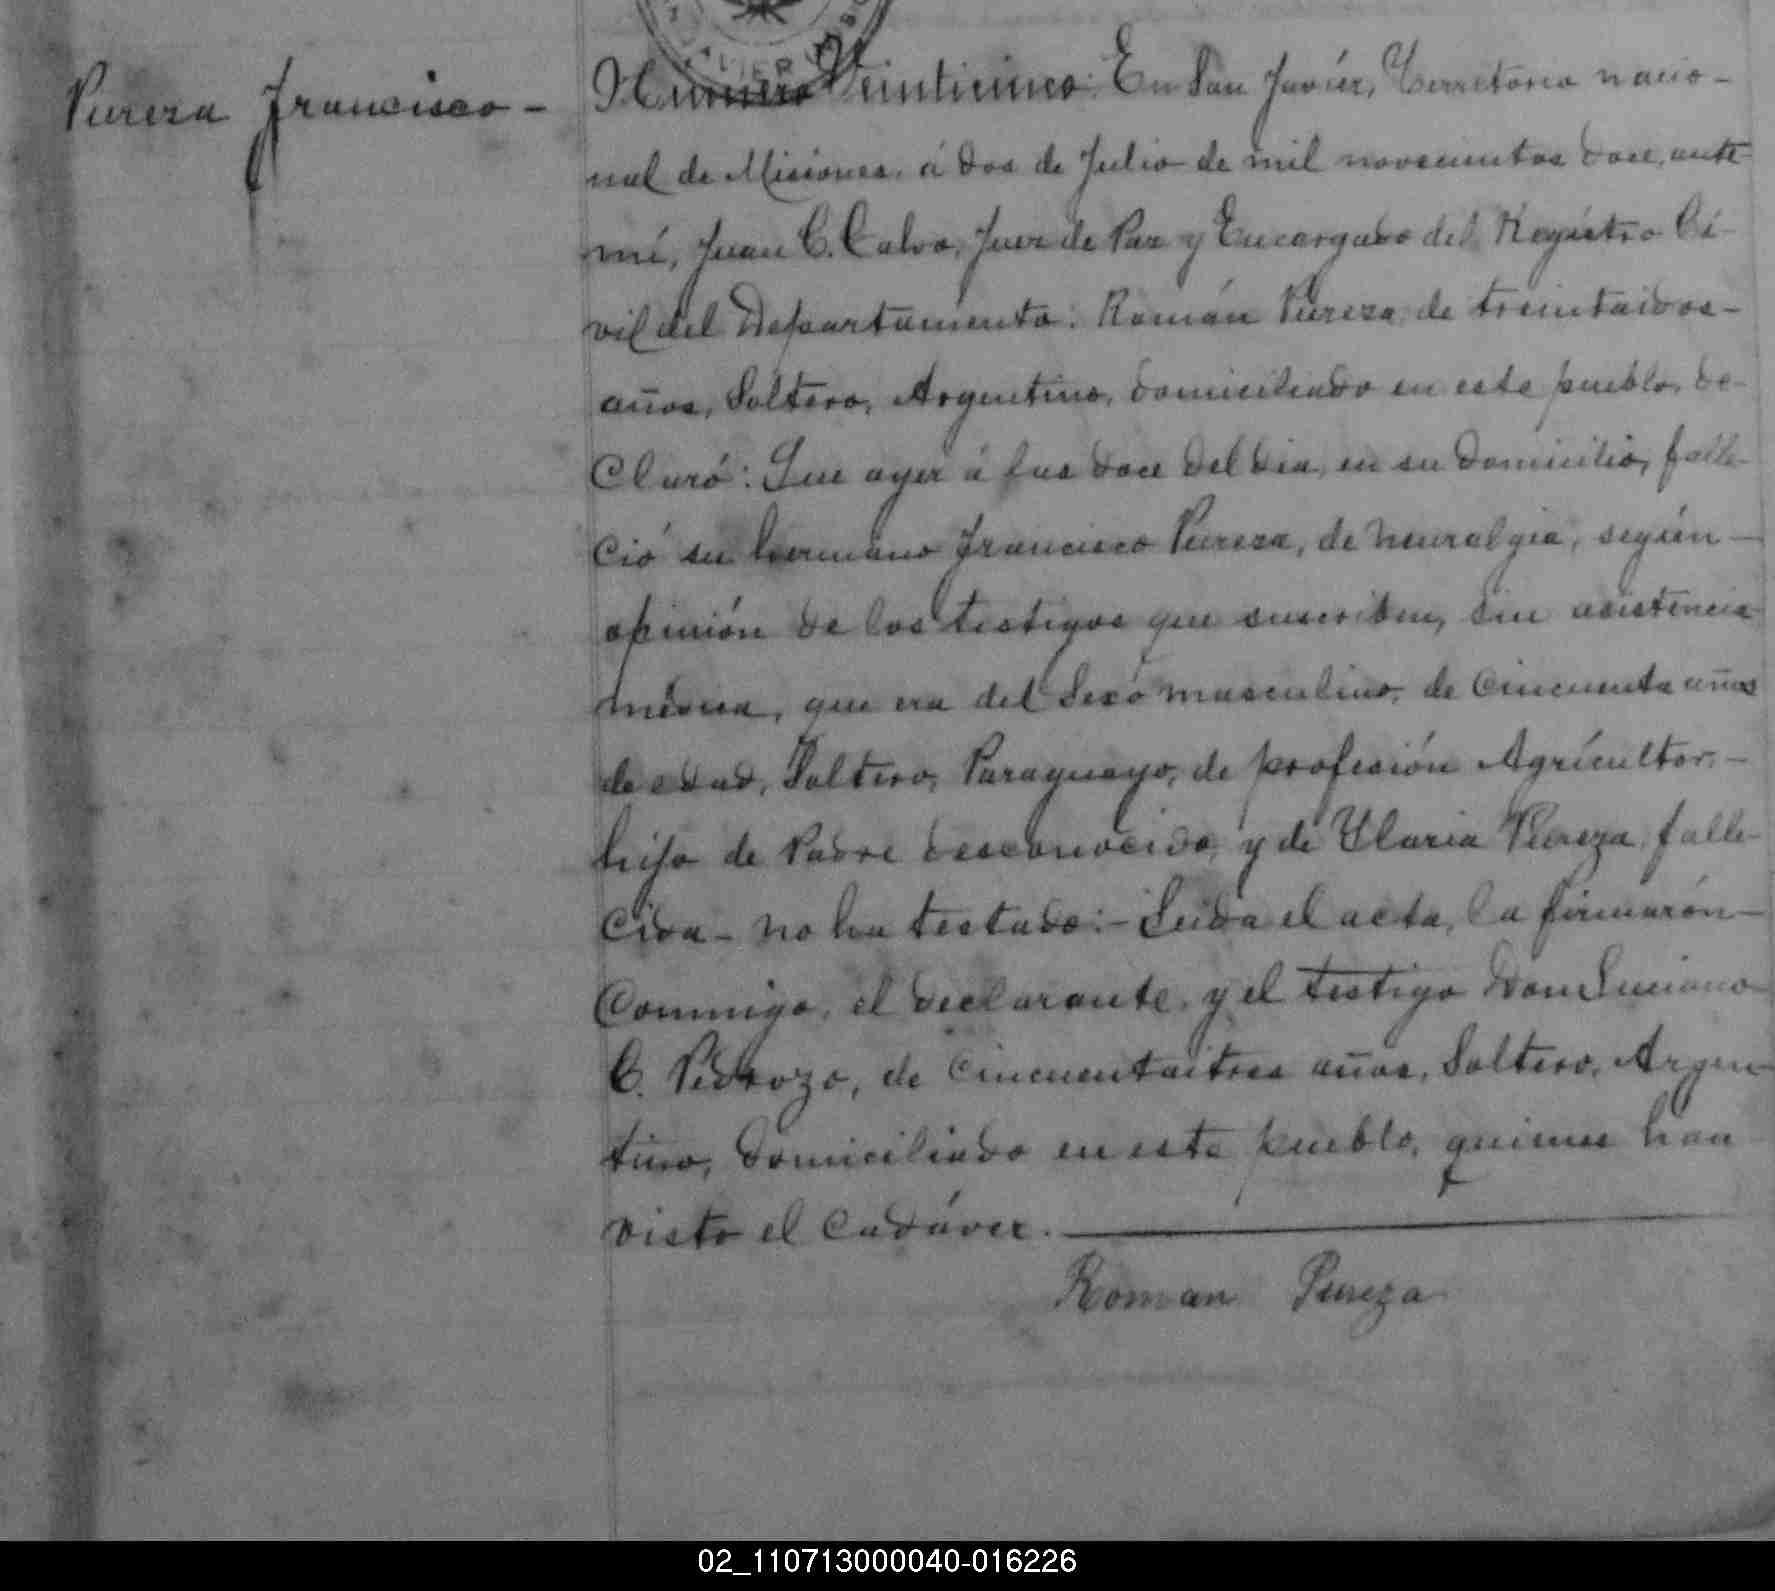 Piereza Francisco -
Numero Veinticinco: En San Javiér, Territorio nacio-
nal de Misiones, á dos de Julio de mil novecientos doce, ante
mí, Juan C. Calvo, Juez de Paz y Encargado del Registro Ci-
vil del Departamento: Román Piereza, de treintaidos-
años, Soltero, Argentino, domiciliado en este pueblo, de-
Claró: Que ayer á las doce del dia, en su domicilio, falle-
ció su hermano Francisco Piereza, de neuralgia, según -
opinión de los testigos que suscriben, sin asistencia
médica, que era del Sexo masculino, de Cincuenta años
de edad, Soltero, Paraguayo, de profesión Agricultor, -
hijo de Padre desconocido, y de Ylaria Piereza, falle-
cida - no ha testado: - Leida el acta, la firmarón -
Conmigo, el declarante, y el testigo Don Luciano
C. Pedrozo, de Cincuentaitres años, Soltero, Argen-
tino, domiciliado en este pueblo, quienes han
visto el Cadáver.
Roman Piereza
02_110713000040-016226